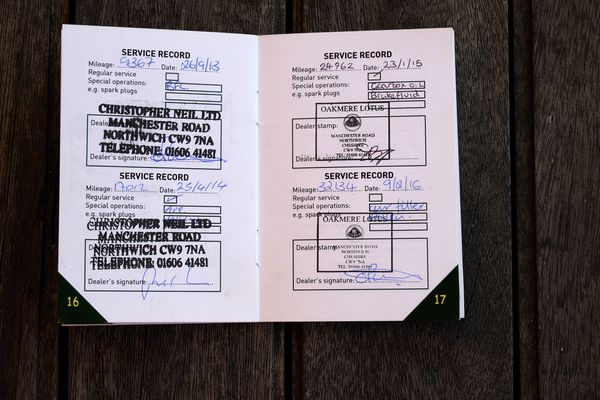 SERVICE RECORD
Mileage: 9367 Date: 26/9/13
Regular service
Special operations: BFC
e.g. spark plugs
CHRISTOPHER NEIL LTD
MANCHESTER ROAD
NORTHWICH CW9 7NA
TELEPHONE: 01606 41481
Dealer's signature:
SERVICE RECORD
Mileage: 17012 Date: 25/4/14
Regular service ✓
Special operations:
e.g. spark plugs
CHRISTOPHER NEIL LTD
MANCHESTER ROAD
NORTHWICH CW9 7NA
TELEPHONE: 01606 41481
Dealer's signature:
16
SERVICE RECORD
Mileage: 24962 Date: 23/1/15
Regular service ✓
Special operations: Gearbox oil
e.g. spark plugs Brake fluid
OAKMERE LOTUS
Dealer stamp:
MANCHESTER ROAD
NORTHWICH
CHESHIRE
CW9 7NA
TEL: 01606 41481
Dealer's signature:
SERVICE RECORD
Mileage: 32134 Date: 9/12/16
Regular service
Special operations: Air filter
e.g. spark plugs
OAKMERE LOTUS
Dealer stamp:
MANCHESTER ROAD
NORTHWICH
CHESHIRE
CW9 7NA
TEL: 01606 41481
Dealer's signature:
17